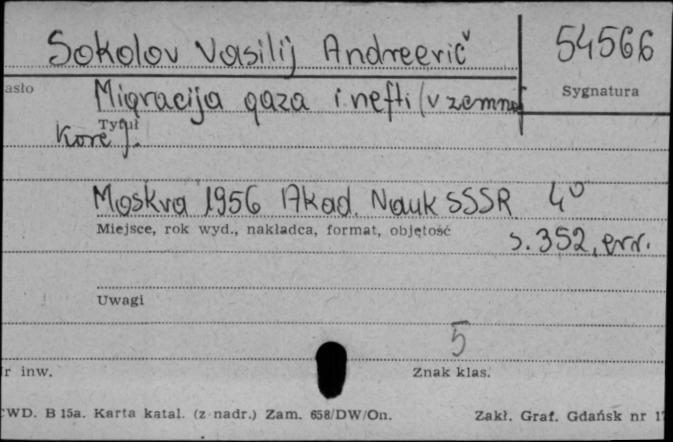 Sokolov Vasilij Andreevič 54566
asło Sygnatura
Migracija gaza i nefti (v zemnoj
Tytuł
kore).
Moskva 1956 Akad. Nauk SSSR 4°
Miejsce, rok wyd., nakładca, format, objętość
s. 352, err.
Uwagi
5
r inw. Znak klas.
CWD. B 15a. Karta katal. (z nadr.) Zam. 658/DW/On. Zakł. Graf. Gdańsk nr 1